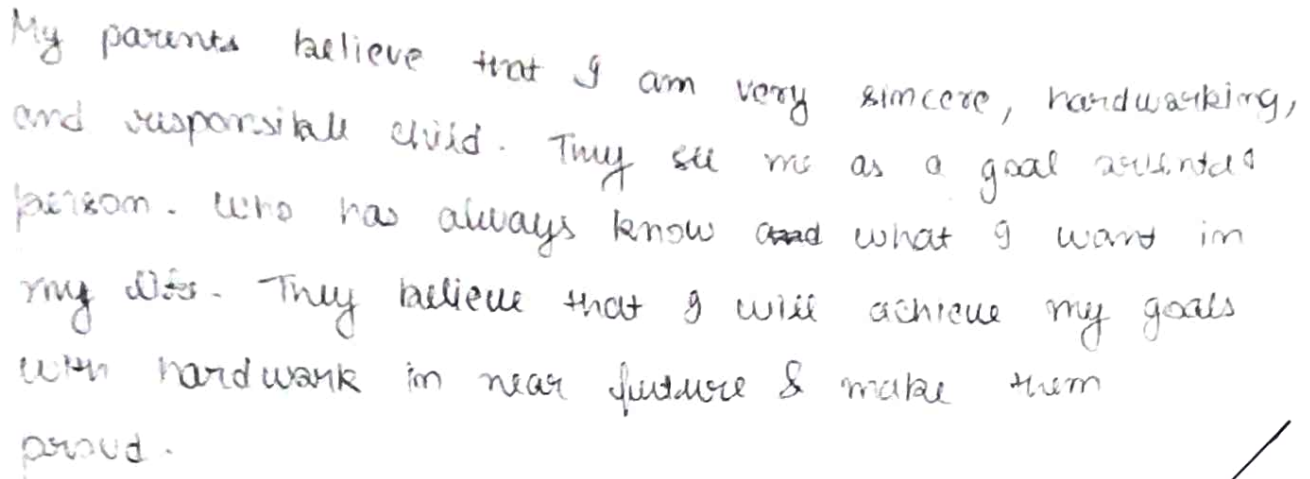 My parents believe that I am very sincere, hardworking,
and responsible child. They see me as a goal oriented
person. Who has always know what I want in
my life. They believe that I will achieve my goals
with hardwork in near future & make them
proud.